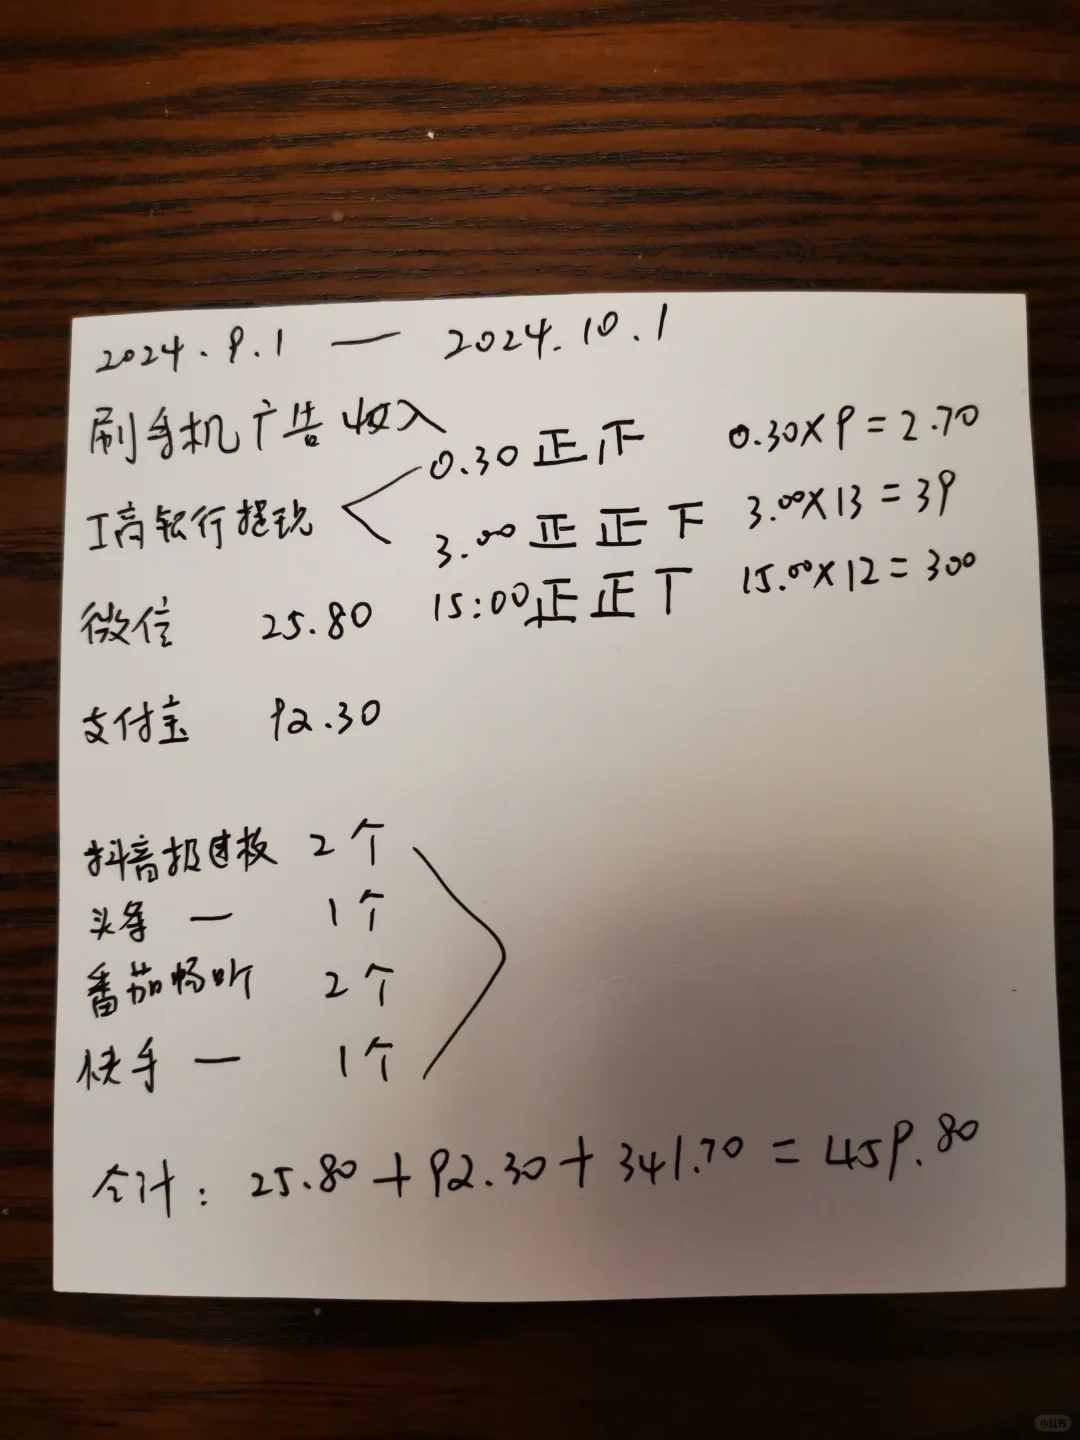 2024.9.1 — 2024.10.1
刷手机广告收入
工商银行提现
0.30 正正 0.30×9=2.70
3.00 正正下 3.00×13=39
15:00 正正丅 15.00×12=300
微信 25.80
支付宝 92.30
抖音极速板 2个
头条 — 1个
番茄畅听 2个
快手 — 1个
合计: 25.80+92.30+341.70=459.80
小红书